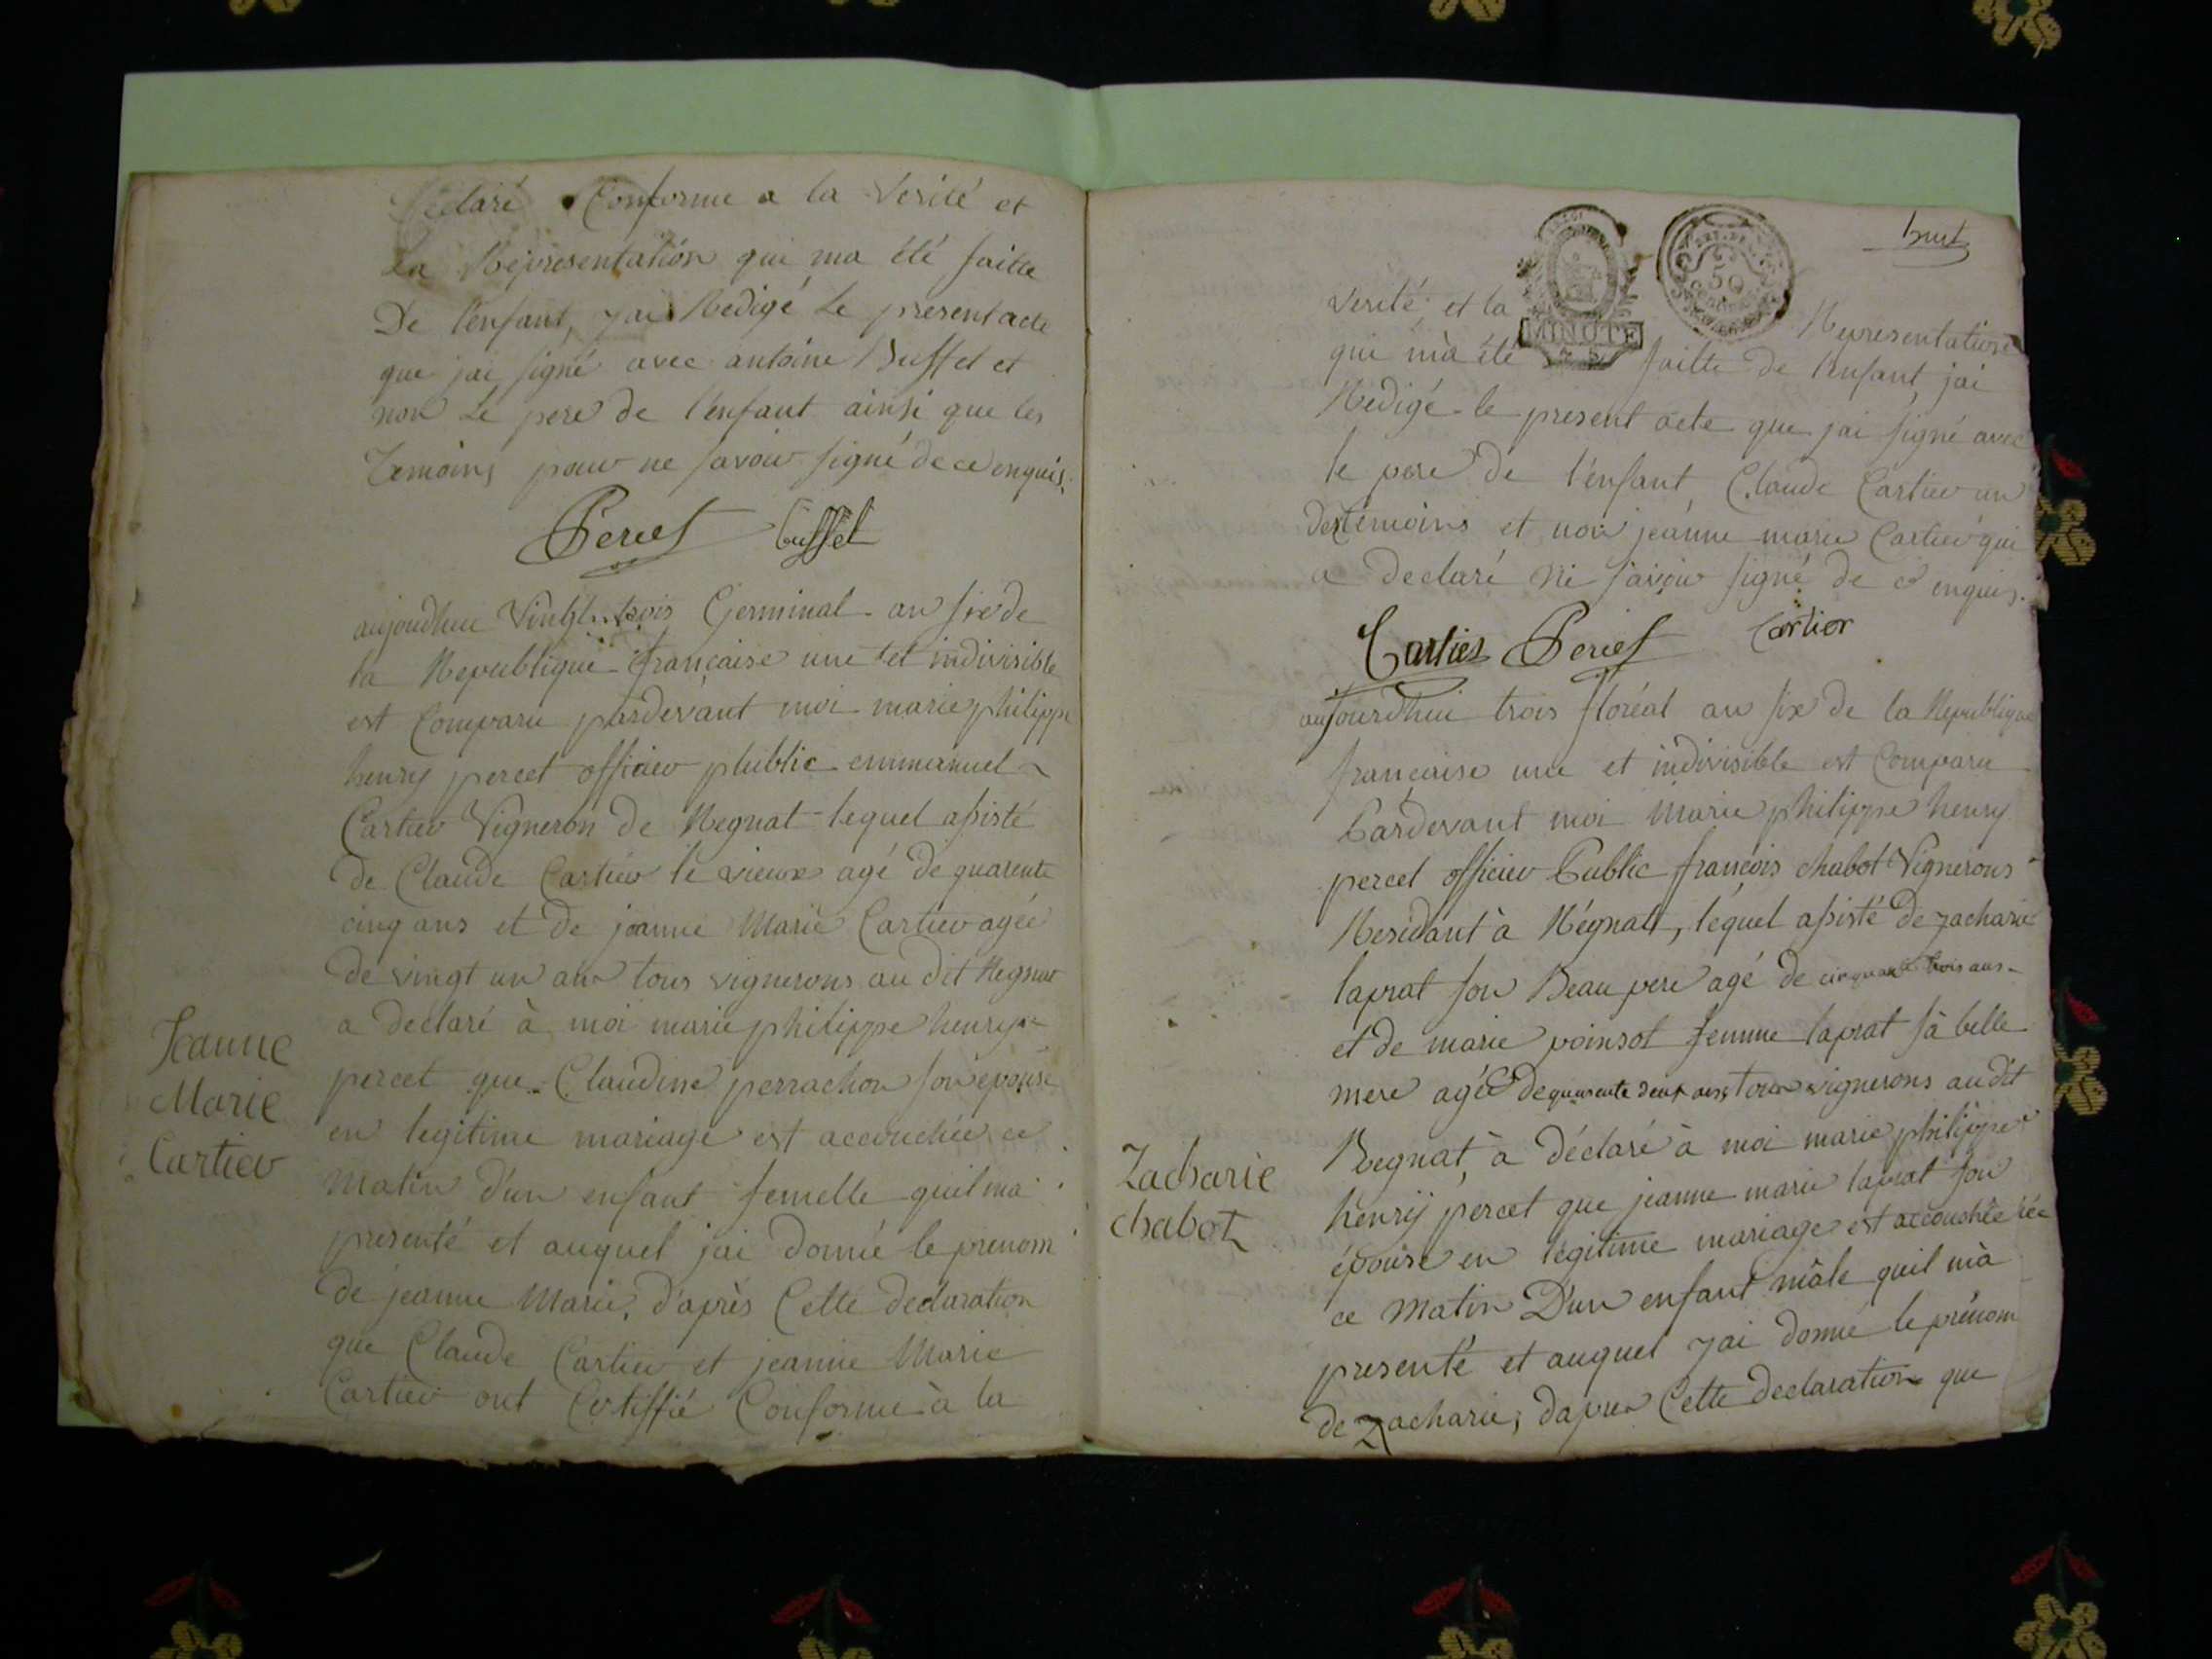 déclaré Conforme a la Verité et
La Représentation qui ma été faitte
De l'enfant, jai Redigé Le present acte
que jai signé avec antoine Buffet et
non Le pere de l'enfant ainsi que les
Temoins pour ne savoir signé de ce enquis.
Percet buffet
aujourdhui Vingt trois Germinal an six de
la Republique française une et indivisible
est Comparu pardevant moi marie philippe
henry percet officier plublic emmanuel
Cartier Vigneron de Regnat lequel assisté
de Claude Cartier le vieux agé de quarente
cinq ans et de jeanne Marie Cartier agée
de vingt un ans tous vignerons au dit Regnat
a declaré à moi marie philippe henry
percet que Claudine perrachon son épouse
en legitime mariage est accouchée ce
Matin d'un enfant femelle quil ma
presenté et auquel jai donné le prenom
de jeanne Marie, d'après Cette declaration
que Claude Cartier et jeanne Marie
Cartier ont Certiffié Conforme à la
Jeanne
Marie
Cartier
huit
MINUTE
50
CENT
verité, et la Representation
qui m'à été faitte de l'enfant, jai
Redigé le present acte que jai signé avec
le pere de l'enfant, Claude Cartier un
des témoins et non jeanne marie Cartier qui
a declaré ne savoir signé de ce enquis.
Cartier Percet Cartier
aujourdhui trois floréal an six de la Republique
française une et indivisible est Comparu
Pardevant moi Marie philippe henry
percet officier Public françois chabot Vignerons
Residant à Régnat, léquel assisté de zacharie
laprat son Beau pere agé de cinquante trois ans
et de marie poinsot femme laprat sà belle
mere agée de quarente deux ans, tous vignerons au dit
Regnat, à déclaré à moi marie philippe
henrij percet que jeanne marie laprat son
épouse en légitime mariage est accouchée
ce Matin D'un enfant mâle quil m'à
presenté et auquel jai donné le prénom
de zacharie, dapres Cette declaration que
Zacharie
chabot